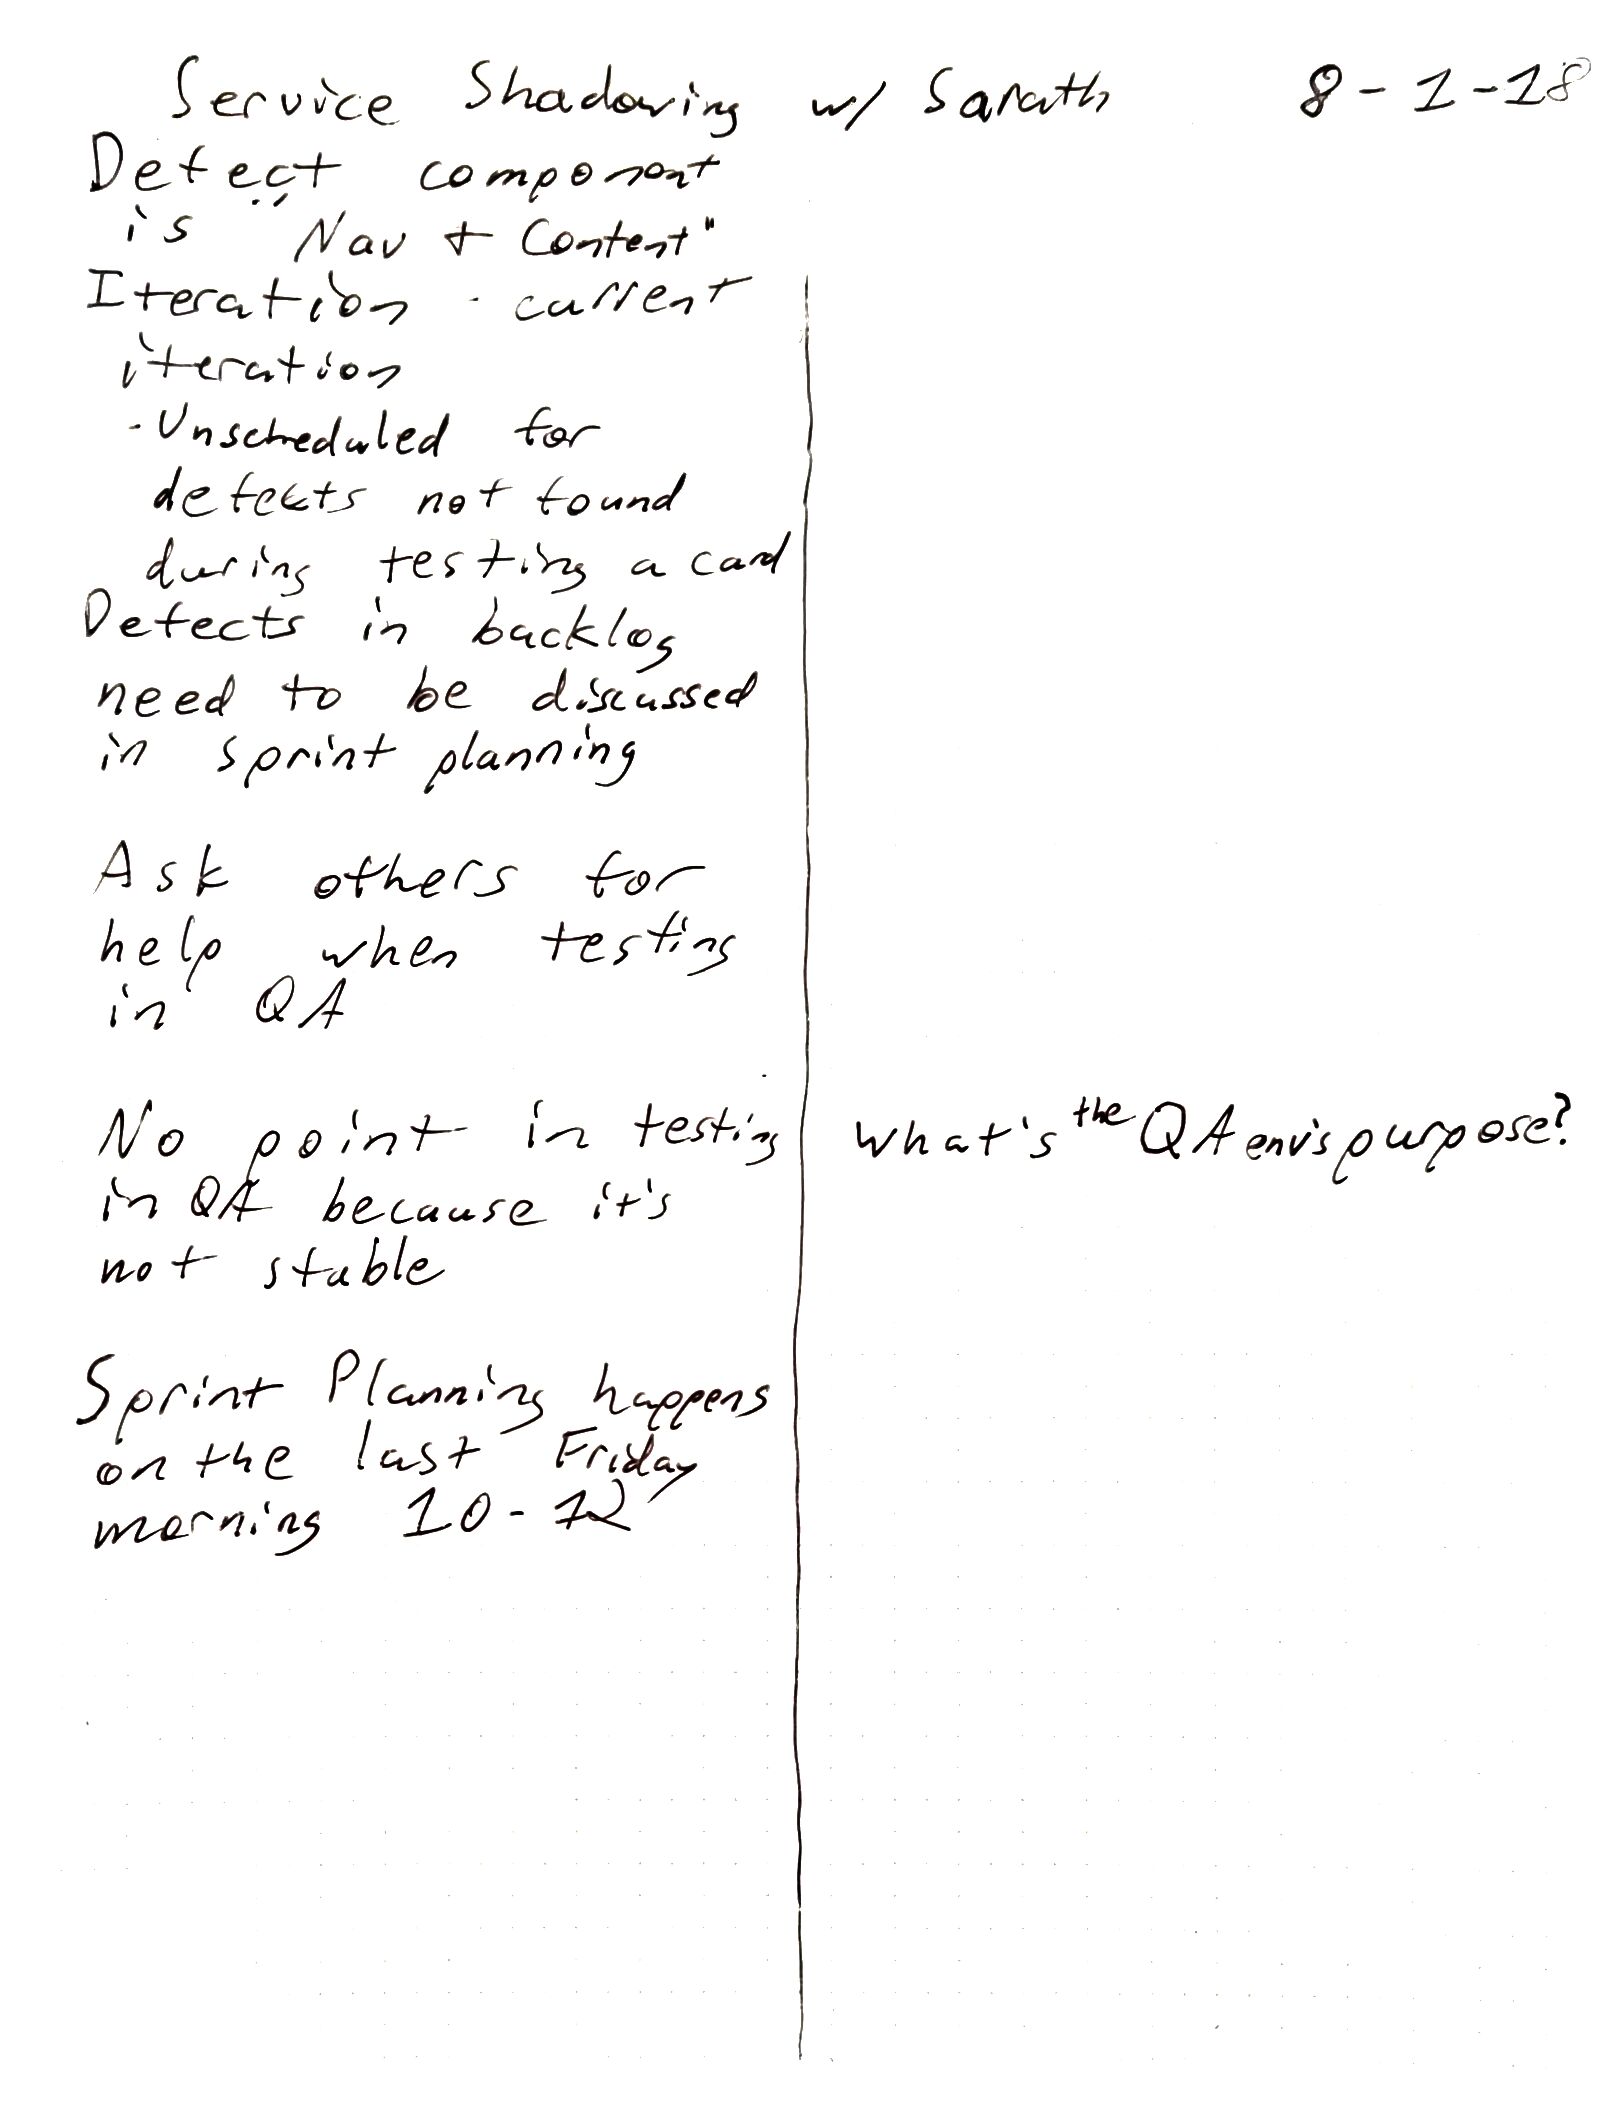 Service Shadowing w/ Sarath 8-1-18
Defect component
is "Nav + Content"
Iteration - current
iteration
- Unscheduled for
defects not found
during testing a card
Defects in backlog
need to be discussed
in sprint planning
Ask others for
help when testing
in QA
No point in testing
in QA because it's
not stable
What's the QA env's purpose?
Sprint Planning happens
on the last Friday
morning 10-12